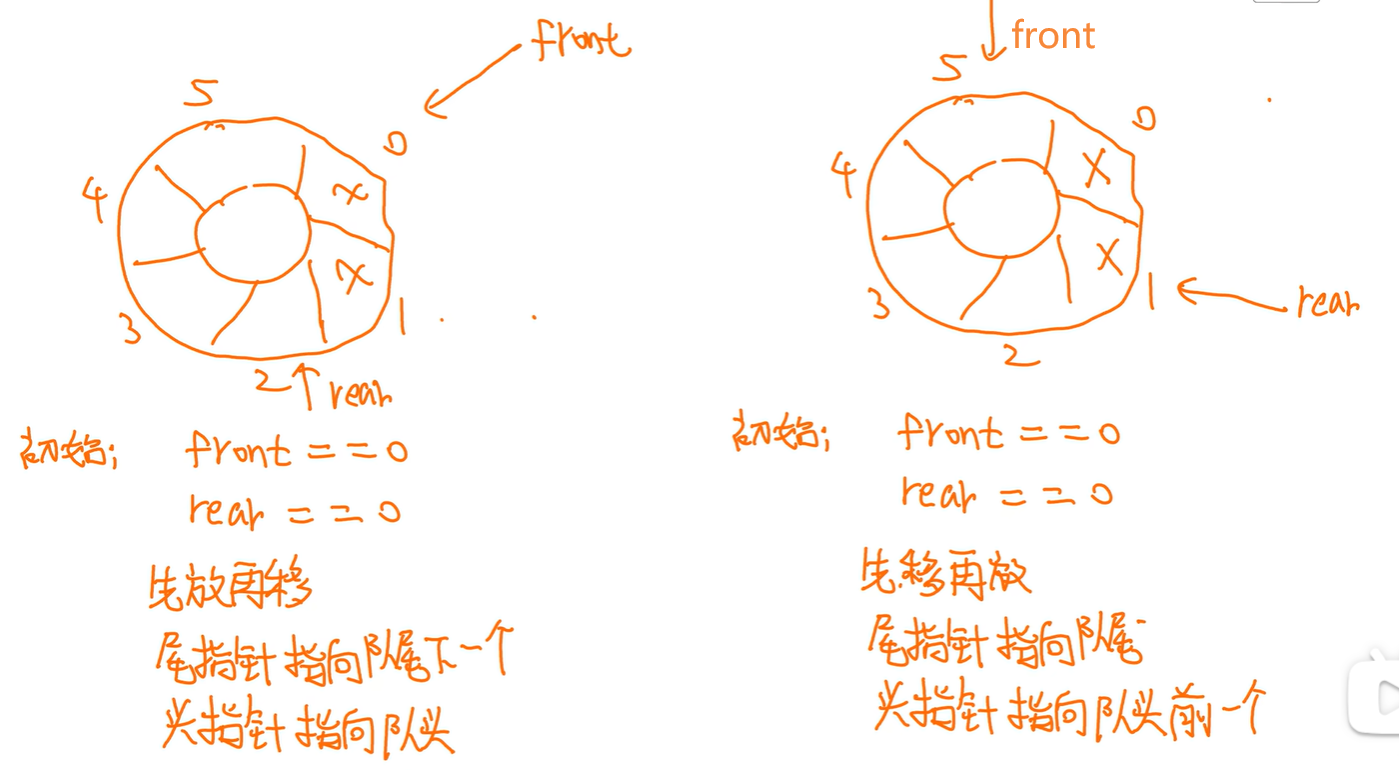 front
5
0
4
x
x
3
1
2
rear
初始:
front == 0
rear == 0
先放再移
尾指针指向队尾下一个
头指针指向队头
front
5
0
4
X
X
3
1
rear
2
初始:
front == 0
rear == 0
先移再放
尾指针指向队尾
头指针指向队头前一个